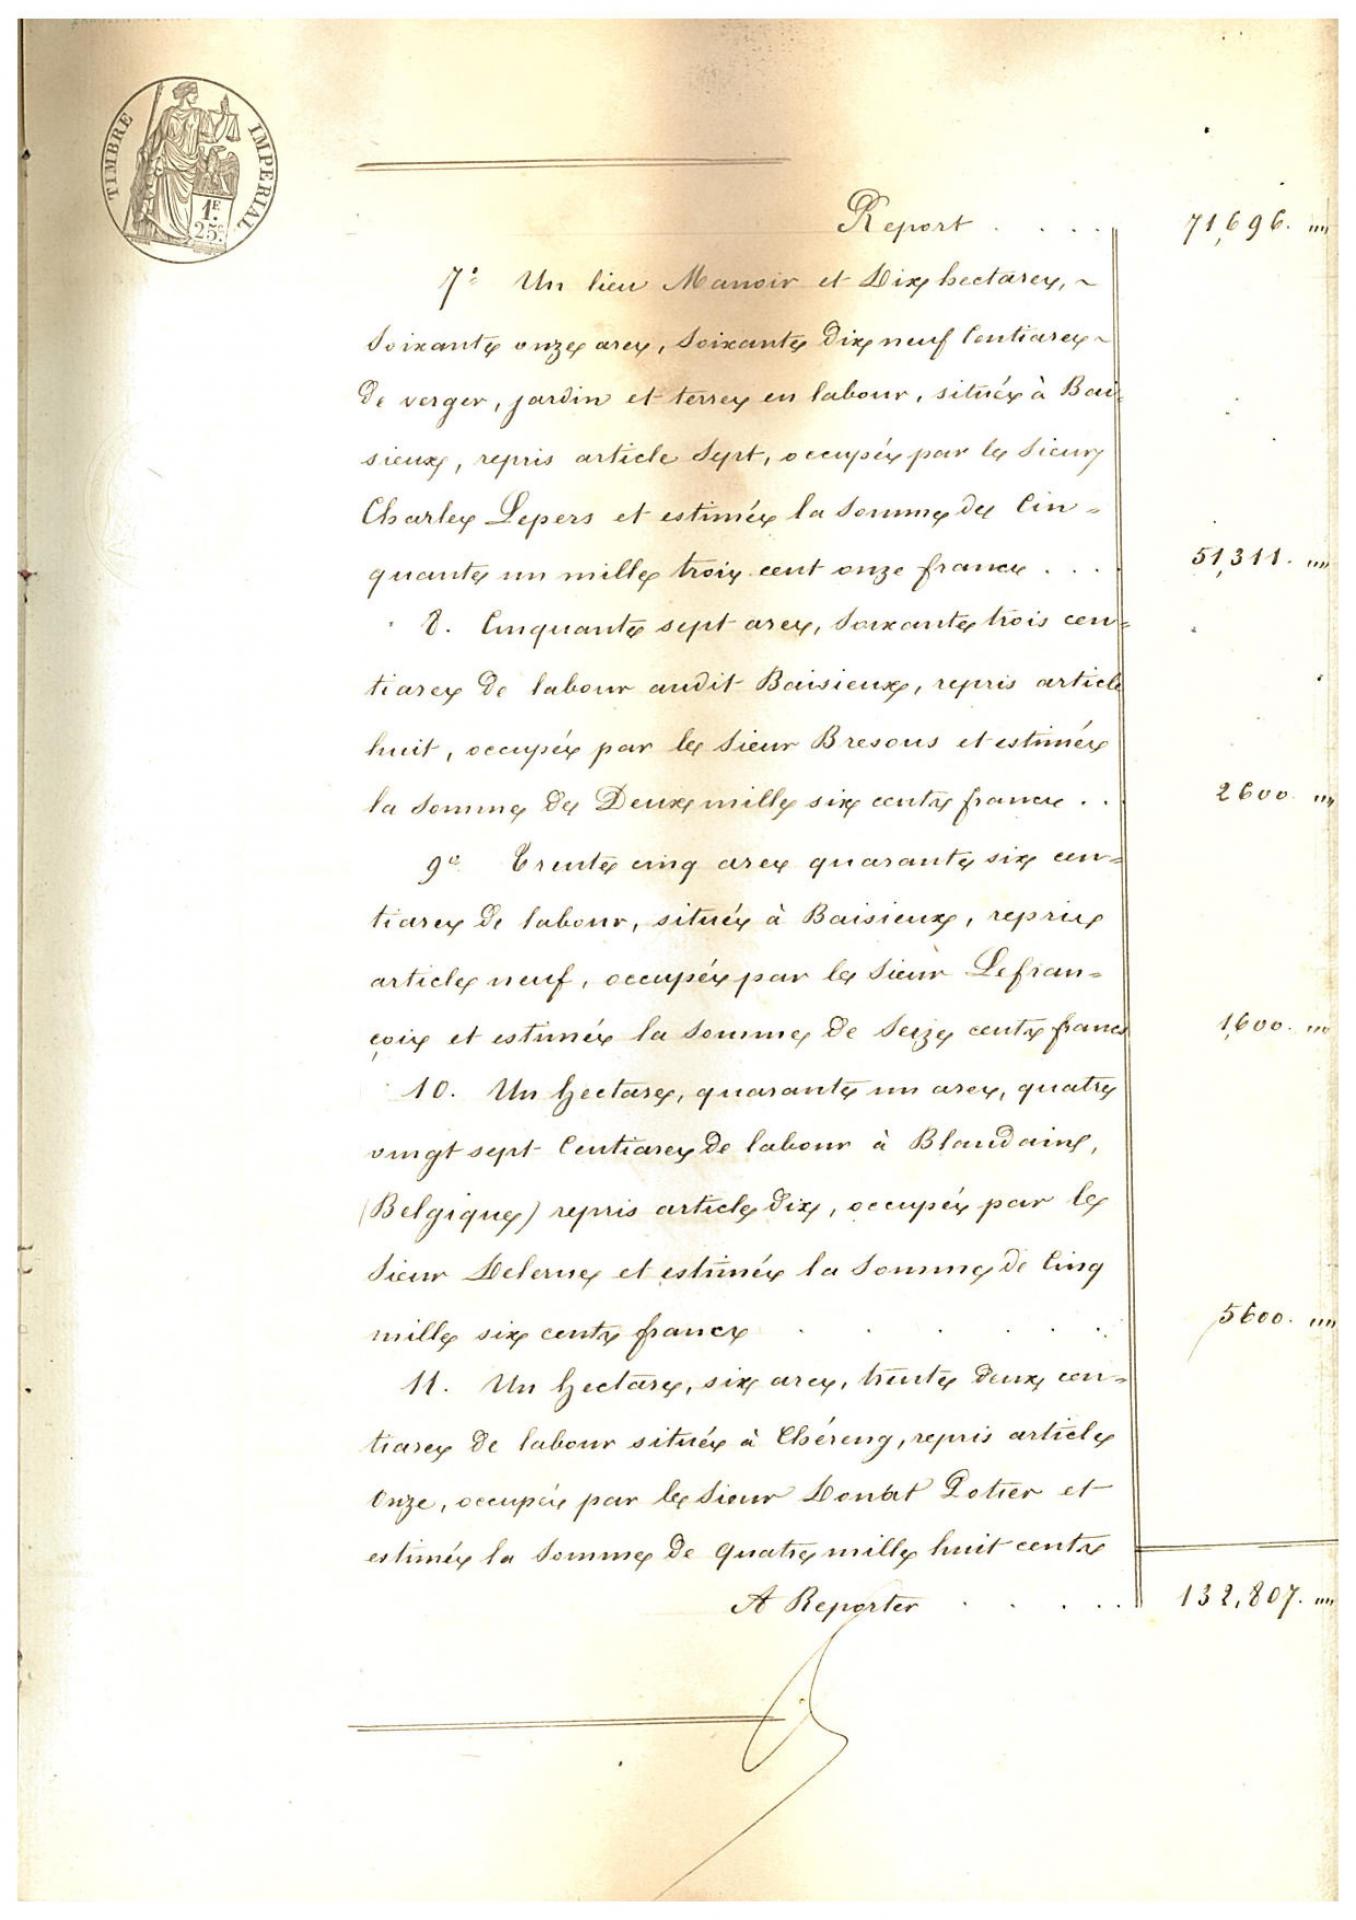 TIMBRE IMPERIAL
1F.
25c.
Report . . . . 71,696. „„
7° Un lieu Manoir et Dix hectares, ~
Soixante onze ares, Soixante Dix neuf Centiares ~
De verger, jardin et terres en labour, situés à Bai=
sieux, repris article Sept, occupés par le Sieur
Charles Lepers et estimés la Somme de Cin=
quante un mille trois cent onze francs . . . 51,311. „„
8. Cinquante sept ares, Soixante trois cen=
tiares De labour audit Baisieux, repris article
huit, occupés par le Sieur Bresous et estimés
la Somme De Deux mille six cents francs . . 2600. „„
9° Trente cinq ares quarante six cen=
tiares De labour, situés à Baisieux, repris
article neuf, occupés par le Sieur Lefran=
çois et estimés la Somme De Seize cents francs 1,600. „„
10. Un hectare, quarante un ares, quatre
vingt sept Centiares De labour à Blandains,
(Belgique) repris article Dix, occupés par le
Sieur Delerue et estimés la Somme De Cinq
mille six cents francs . . . . . . 5600. „„
11. Un hectare, six ares, trente Deux cen=
tiares De labour situés à Chéreng, repris article
Onze, occupés par le Sieur Donat Potier et
estimés la Somme De quatre mille huit cents
A Reporter . . . . . 132,807. „„